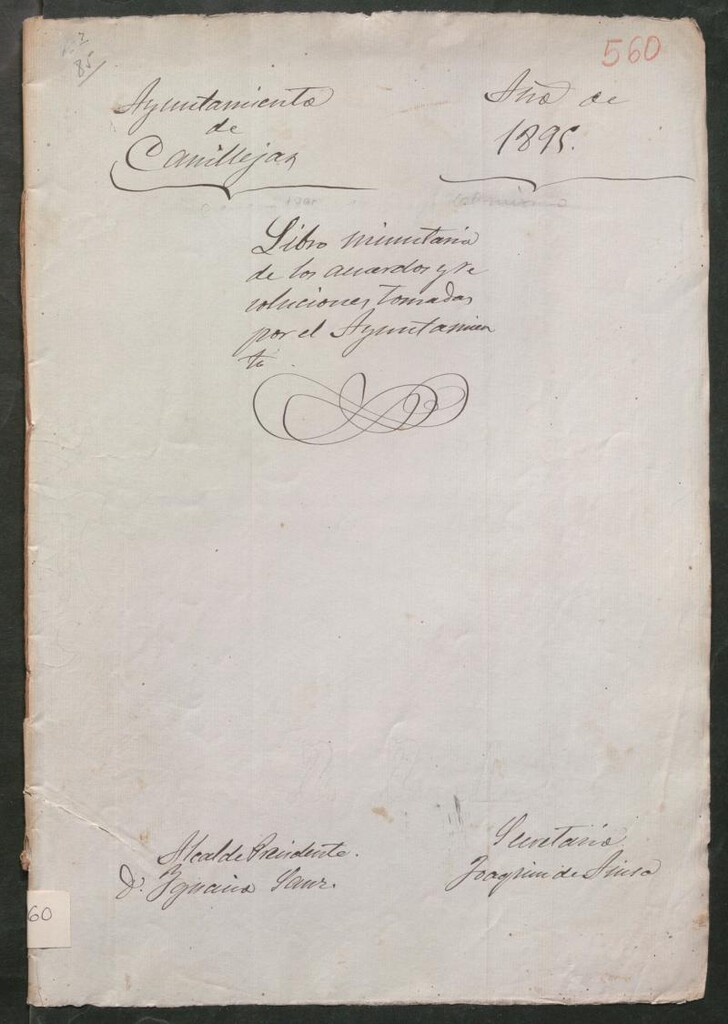 560
85
Ayuntamiento
de
Canillejas
Año de
1895.
Libro minutario
de los acuerdos y re
soluciones tomadas
por el Ayuntamien
to.
Alcalde Presidente.
D. Ygnacio Sanz.
Secretario
Joaquin de
60